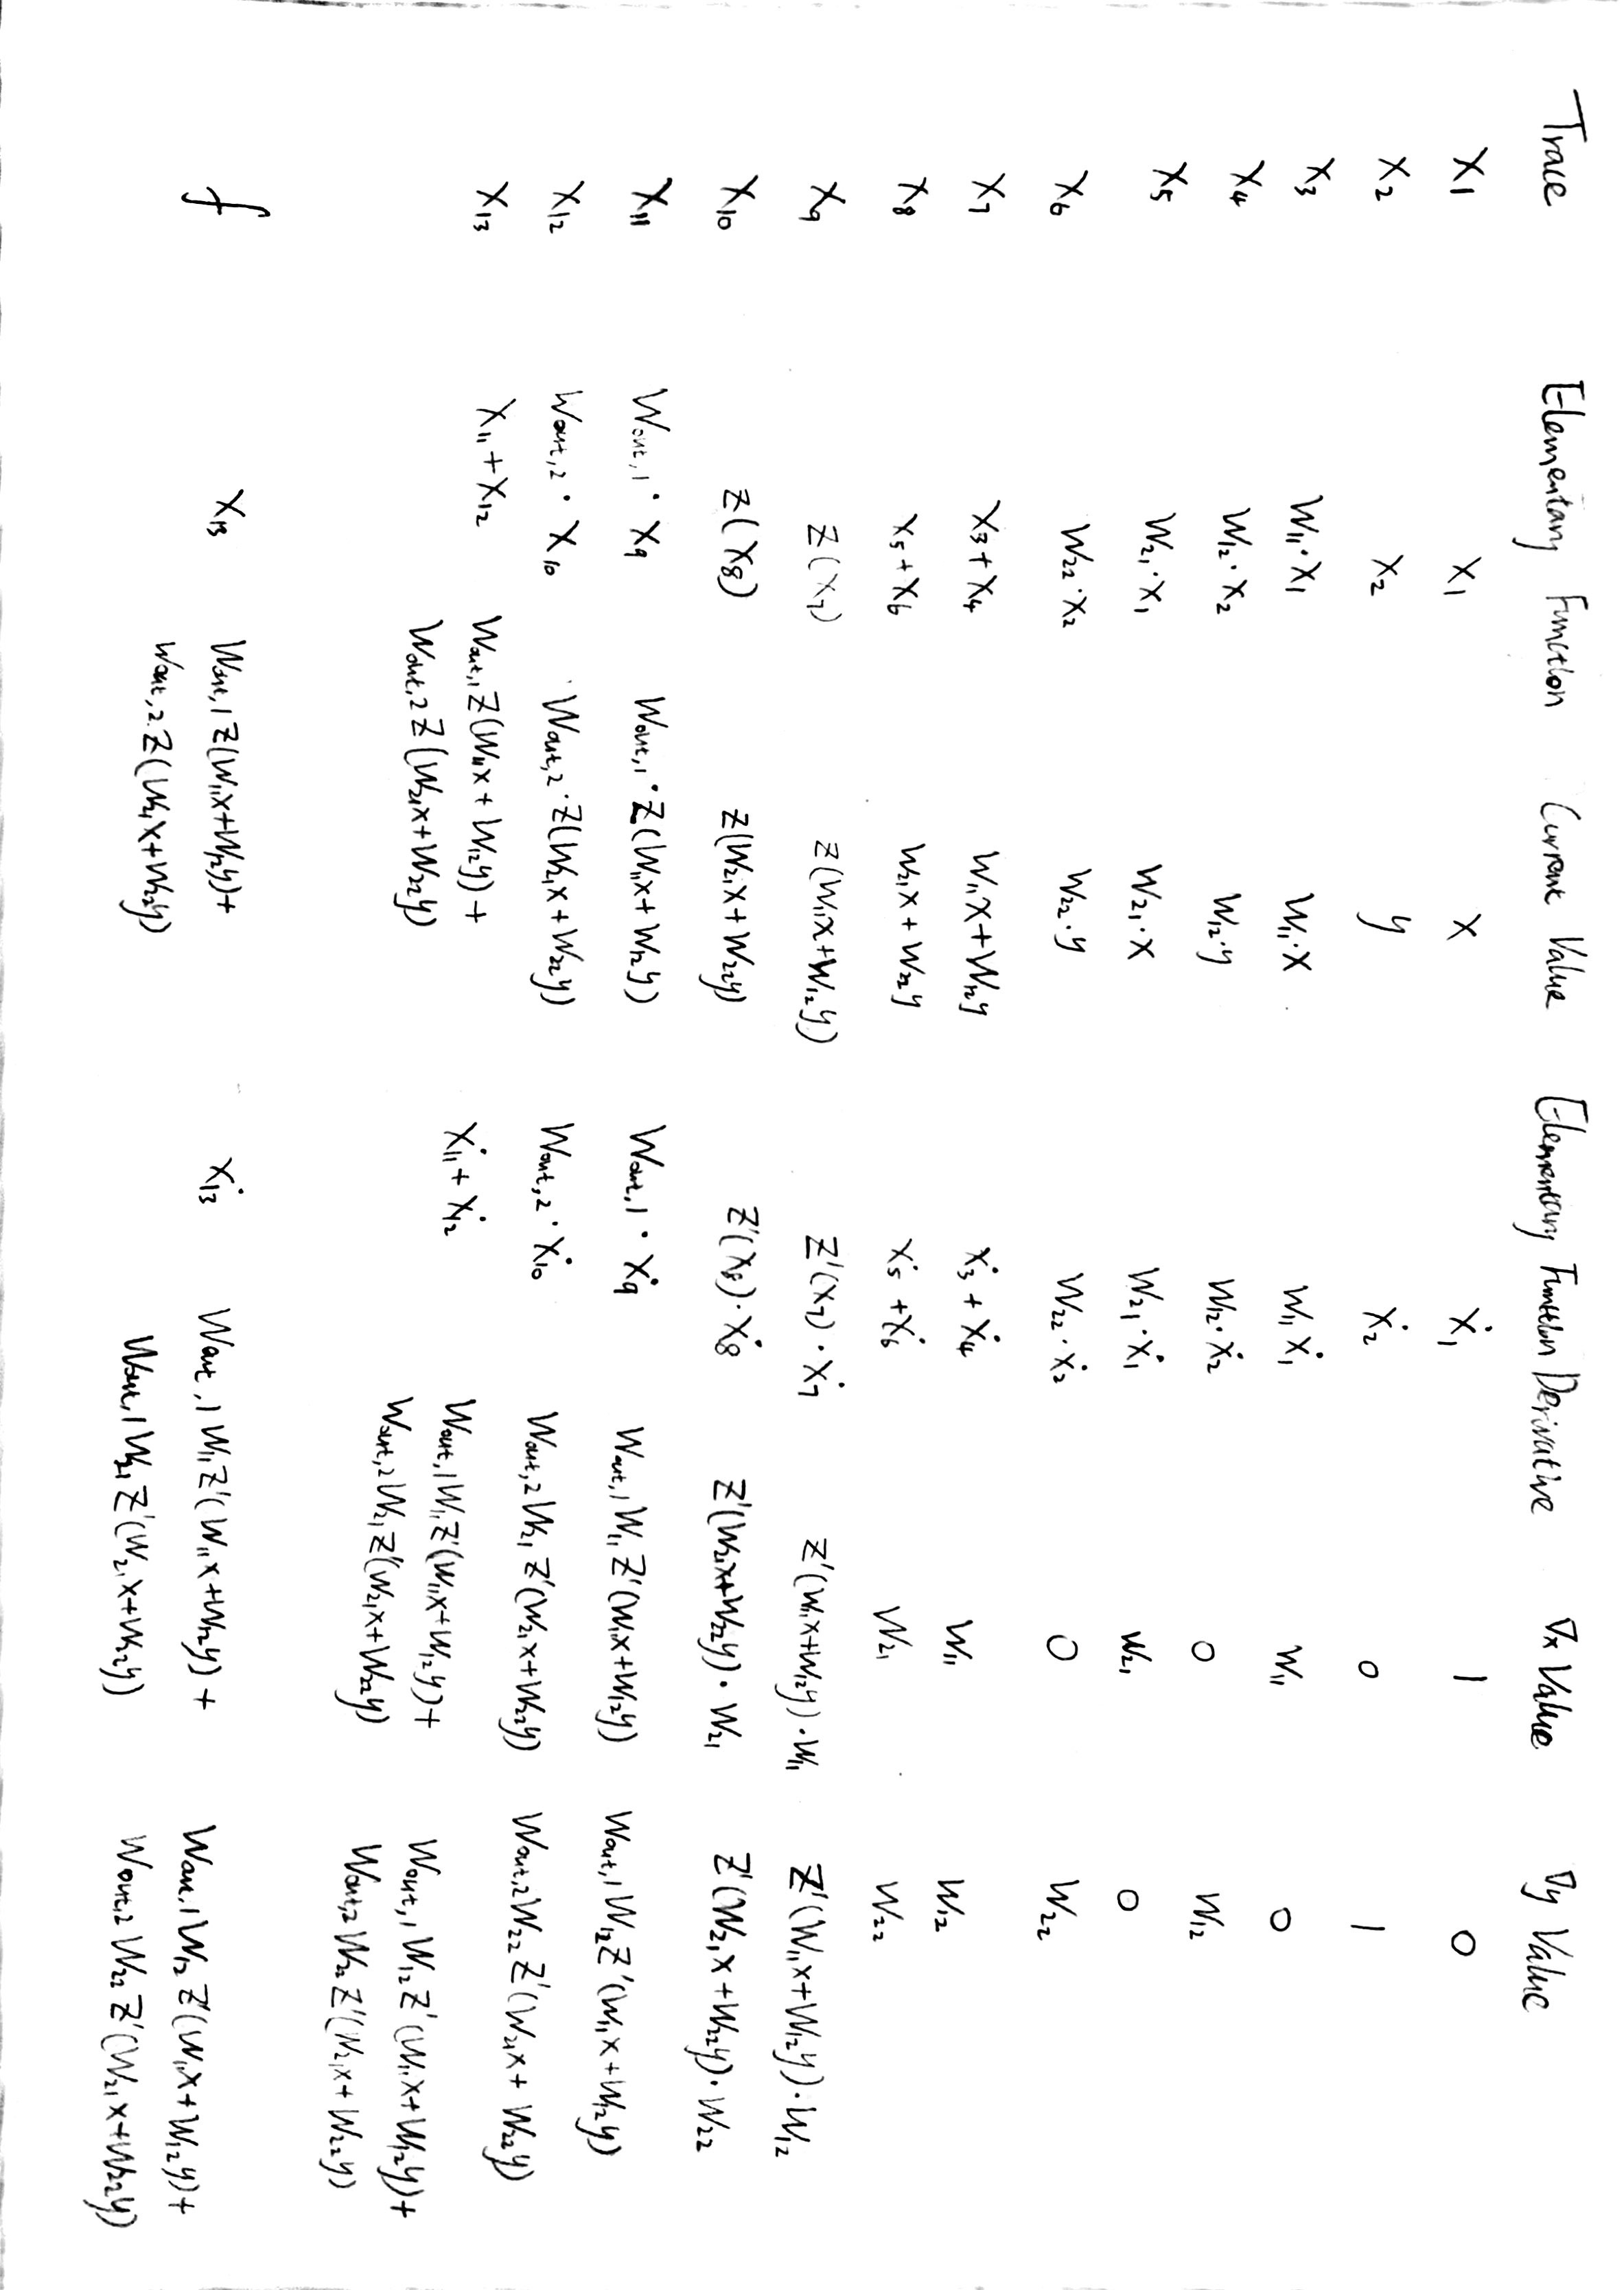 Trace Elementary Function Current Value Elementary Function Derivative ∇x Value ∇y Value
X₁ X₁ X Ẋ₁ 1 0
X₂ X₂ y Ẋ₂ 0 1
X₃ W₁₁·X₁ W₁₁·X W₁₁Ẋ₁ W₁₁ 0
X₄ W₁₂·X₂ W₁₂·y W₁₂·Ẋ₂ 0 W₁₂
X₅ W₂₁·X₁ W₂₁·X W₂₁·Ẋ₁ W₂₁ 0
X₆ W₂₂·X₂ W₂₂·y W₂₂·Ẋ₂ 0 W₂₂
X₇ X₃+X₄ W₁₁X+W₁₂y Ẋ₃+Ẋ₄ W₁₁ W₁₂
X₈ X₅+X₆ W₂₁X+W₂₂y Ẋ₅+Ẋ₆ W₂₁ W₂₂
X₉ Z(X₇) Z(W₁₁X+W₁₂y) Z'(X₇)·Ẋ₇ Z'(W₁₁X+W₁₂y)·W₁₁ Z'(W₁₁X+W₁₂y)·W₁₂
X₁₀ Z(X₈) Z(W₂₁X+W₂₂y) Z'(X₈)·Ẋ₈ Z'(W₂₁X+W₂₂y)·W₂₁ Z'(W₂₁X+W₂₂y)·W₂₂
X₁₁ Wout,1·X₉ Wout,1·Z(W₁₁X+W₁₂y) Wout,1·Ẋ₉ Wout,1W₁₁Z'(W₁₁X+W₁₂y) Wout,1W₁₂Z'(W₁₁X+W₁₂y)
X₁₂ Wout,2·X₁₀ Wout,2·Z(W₂₁X+W₂₂y) Wout,2·Ẋ₁₀ Wout,2W₂₁Z'(W₂₁X+W₂₂y) Wout,2W₂₂Z'(W₂₁X+W₂₂y)
X₁₃ X₁₁+X₁₂ Wout,1Z(W₁₁X+W₁₂y)+ Ẋ₁₁+Ẋ₁₂ Wout,1W₁₁Z'(W₁₁X+W₁₂y)+ Wout,1W₁₂Z'(W₁₁X+W₁₂y)+
Wout,2Z(W₂₁X+W₂₂y) Wout,2W₂₁Z'(W₂₁X+W₂₂y) Wout,2W₂₂Z'(W₂₁X+W₂₂y)
f X₁₃ Wout,1Z(W₁₁X+W₁₂y)+ Ẋ₁₃ Wout,1W₁₁Z'(W₁₁X+W₁₂y)+ Wout,1W₁₂Z'(W₁₁X+W₁₂y)+
Wout,2Z(W₂₁X+W₂₂y) Wout,1W₂₁Z'(W₂₁X+W₂₂y) Wout,2W₂₂Z'(W₂₁X+W₂₂y)